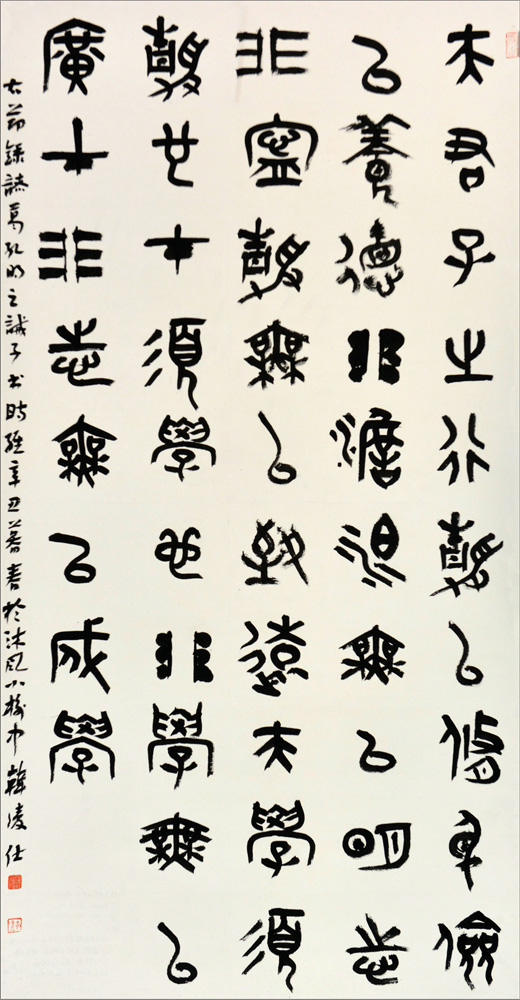 夫君子之行靜以脩身儉
以養德非澹泊無以明志
非寧靜無以致遠夫學須
靜也才須學也非學無以
廣才非志無以成學
右節錄諸葛孔明之誡子書時維辛丑暮春於沐風小樓中韓凌仕